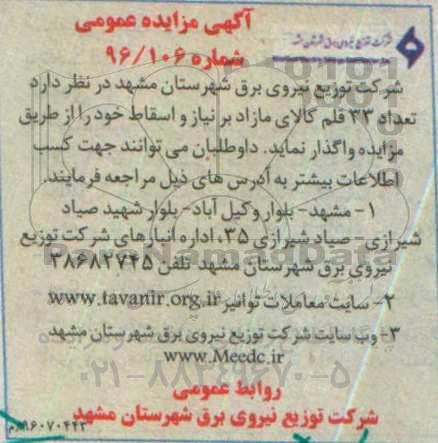 شرکت توزیع نیروی برق شهرستان مشهد
آگهی مزایده عمومی
شماره ۹۶/۱۰۶
شرکت توزیع نیروی برق شهرستان مشهد در نظر دارد
تعداد ۳۳ قلم کالای مازاد بر نیاز و اسقاط خود را از طریق
مزایده واگذار نماید. داوطلبان می توانند جهت کسب
اطلاعات بیشتر به آدرس های ذیل مراجعه فرمایند.
۱- مشهد- بلوار وکیل آباد- بلوار شهید صیاد
شیرازی- صیاد شیرازی ۳۵، اداره انبارهای شرکت توزیع
نیروی برق شهرستان مشهد تلفن ۳۸۶۸۲۷۴۵
۲- سایت معاملات توانیر www.tavanir.org.ir
۳- وب سایت شرکت توزیع نیروی برق شهرستان مشهد
www.Meedc.ir
۰۲۱-۸۸۳۴۹۶۷۰-۵
روابط عمومی
شرکت توزیع نیروی برق شهرستان مشهد
۹۶۰۷۰۴۴۳/م